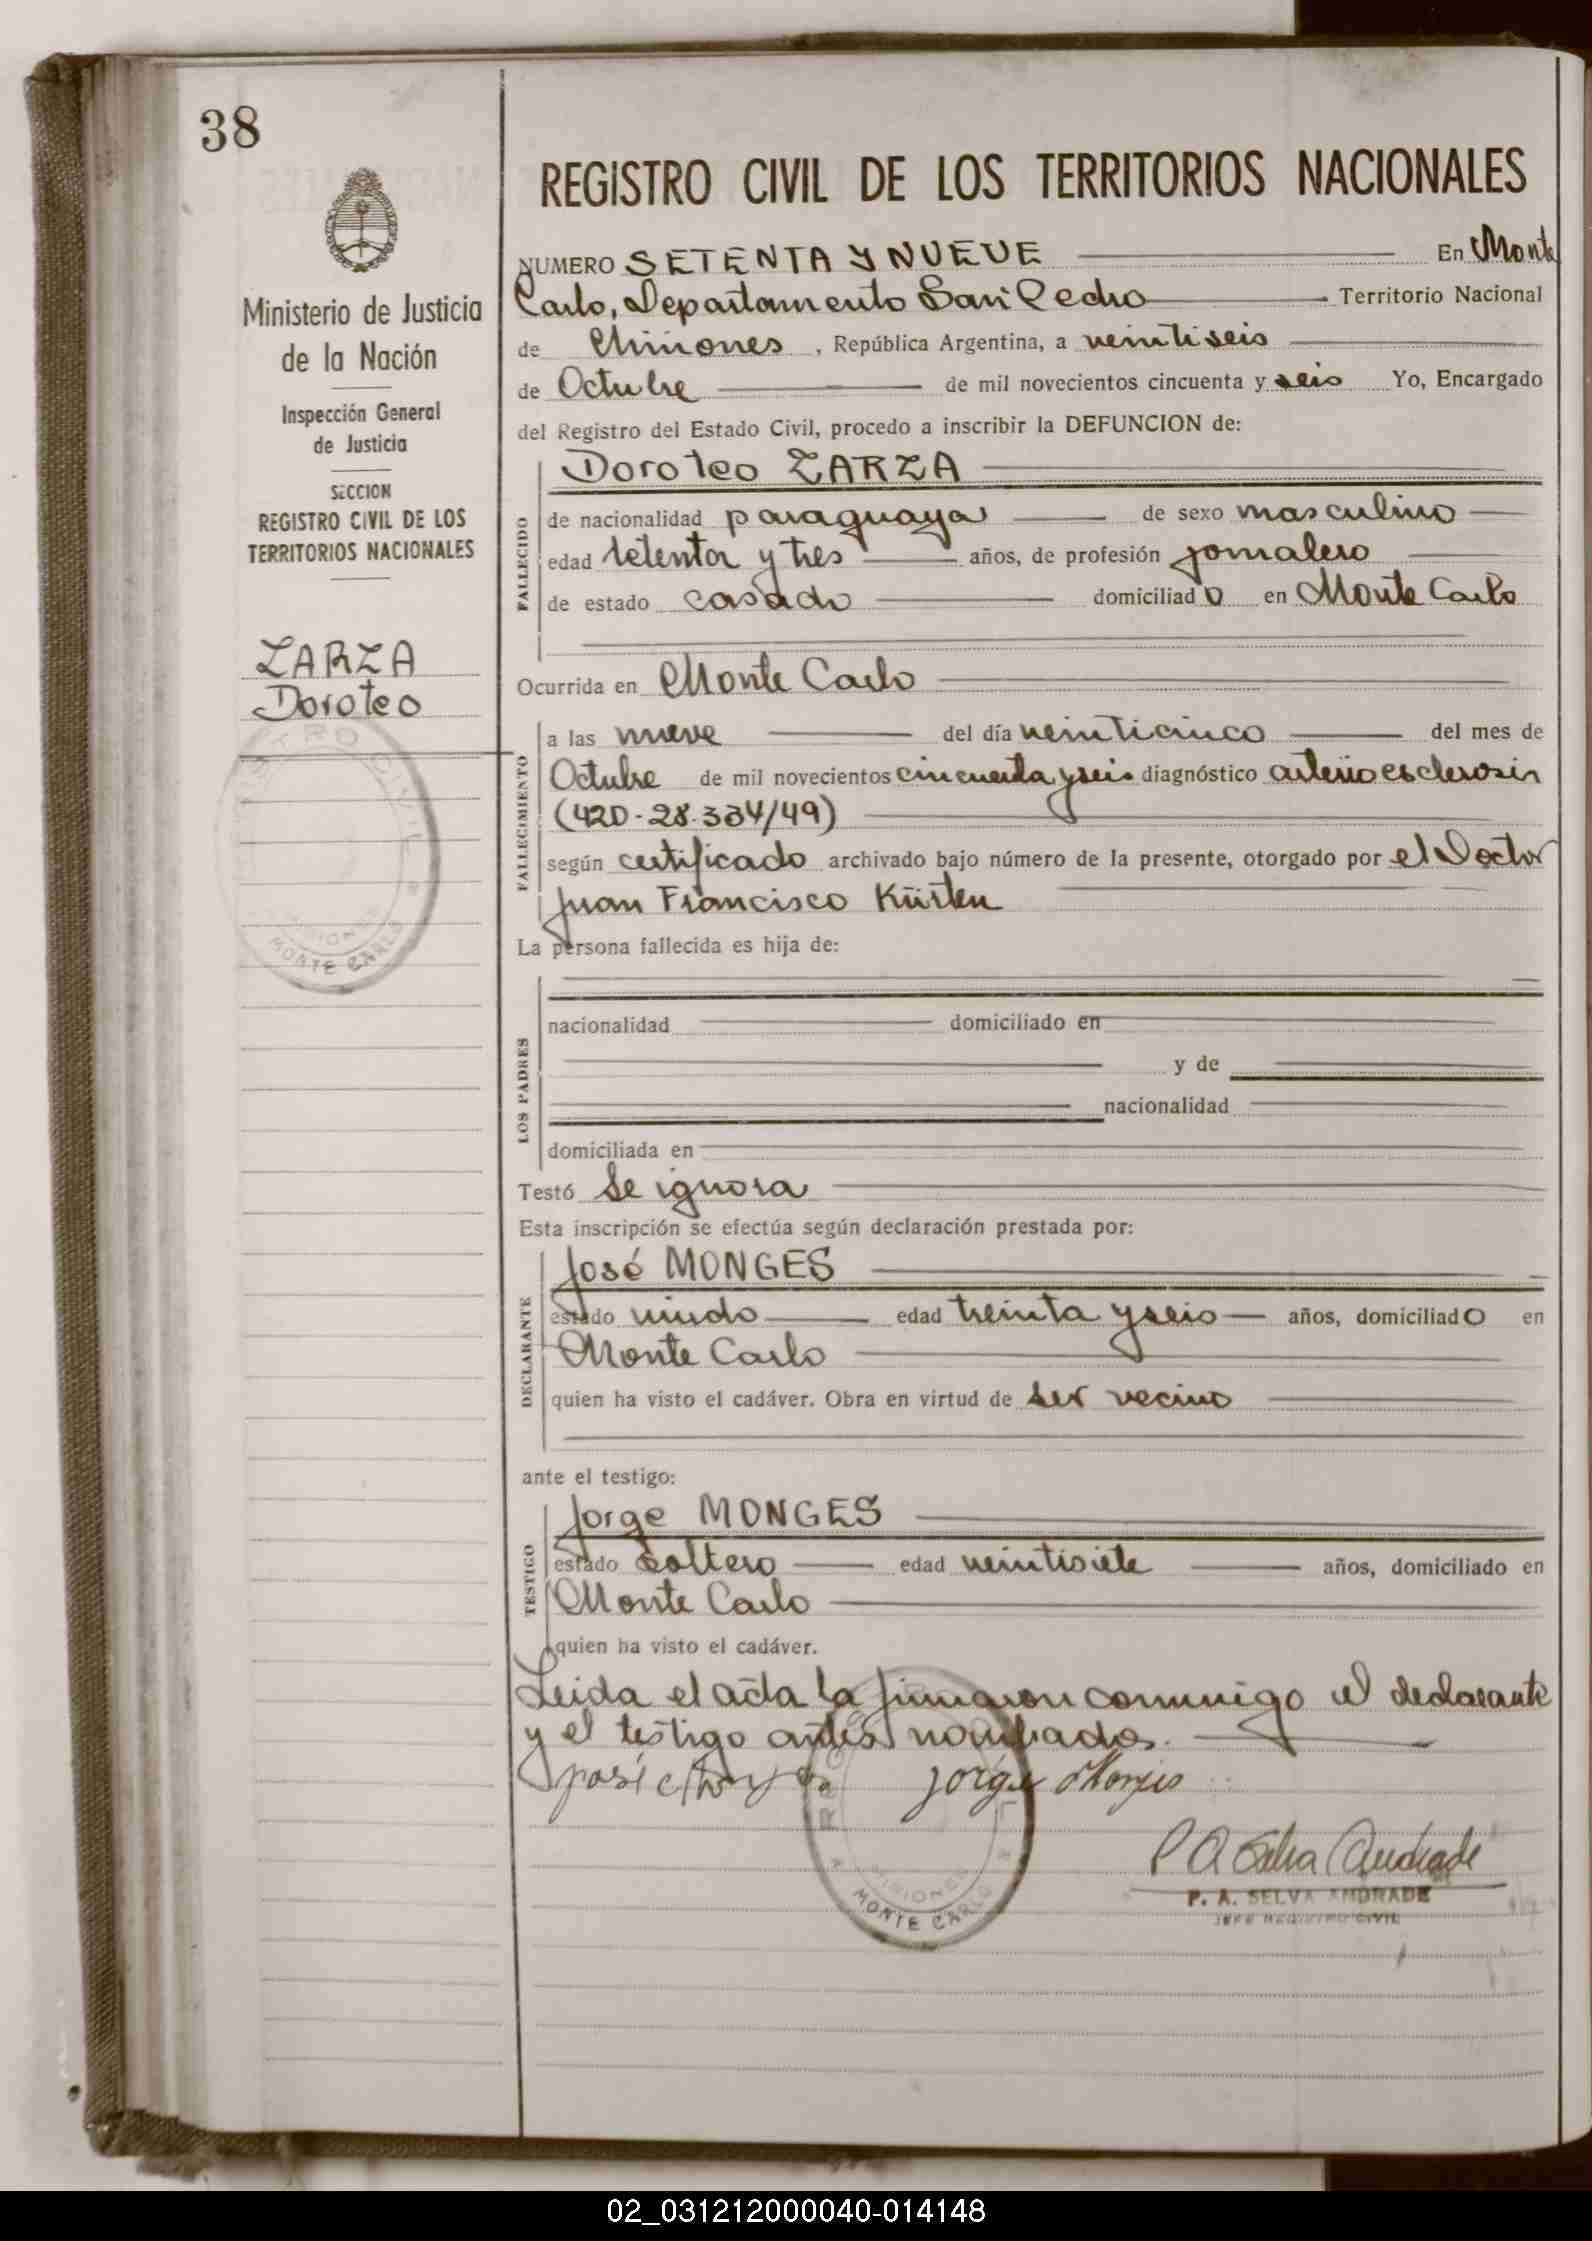 38
Ministerio de Justicia
de la Nación
Inspección General
de Justicia
SECCION
REGISTRO CIVIL DE LOS
TERRITORIOS NACIONALES
ZARZA
Doroteo
REGISTRO CIVIL
MISIONES
MONTE CARLO
REGISTRO CIVIL DE LOS TERRITORIOS NACIONALES
NUMERO SETENTA Y NUEVE En Monte
Carlo, Departamento San Pedro Territorio Nacional
de Misiones, República Argentina, a veintiseis
de Octubre de mil novecientos cincuenta y seis Yo, Encargado
del Registro del Estado Civil, procedo a inscribir la DEFUNCION de:
FALLECIDO
Doroteo ZARZA
de nacionalidad paraguaya de sexo masculino
edad setenta y tres años, de profesión jornalero
de estado casado domiciliado en Monte Carlo
Ocurrida en Monte Carlo
FALLECIMIENTO
a las nueve del día veinticinco del mes de
Octubre de mil novecientos cincuenta y seis diagnóstico arterioesclerosis
(420-28.334/49)
según certificado archivado bajo número de la presente, otorgado por el Doctor
Juan Francisco Kürten
La persona fallecida es hija de:
LOS PADRES
nacionalidad domiciliado en
y de
nacionalidad
domiciliada en
Testó Se ignora
Esta inscripción se efectúa según declaración prestada por:
DECLARANTE
José MONGES
estado viudo edad treinta y seis años, domiciliado en
Monte Carlo
quien ha visto el cadáver. Obra en virtud de ser vecino
ante el testigo:
TESTIGO
Jorge MONGES
estado soltero edad veintisiete años, domiciliado en
Monte Carlo
quien ha visto el cadáver.
Leida el acta la firmaron conmigo el declarante
y el testigo antes nombrados.
Jorge Monges
P A Selva Andrade
P. A. SELVA ANDRADE
JEFE REGISTRO CIVIL
MISIONES
MONTE CARLO
02_031212000040-014148